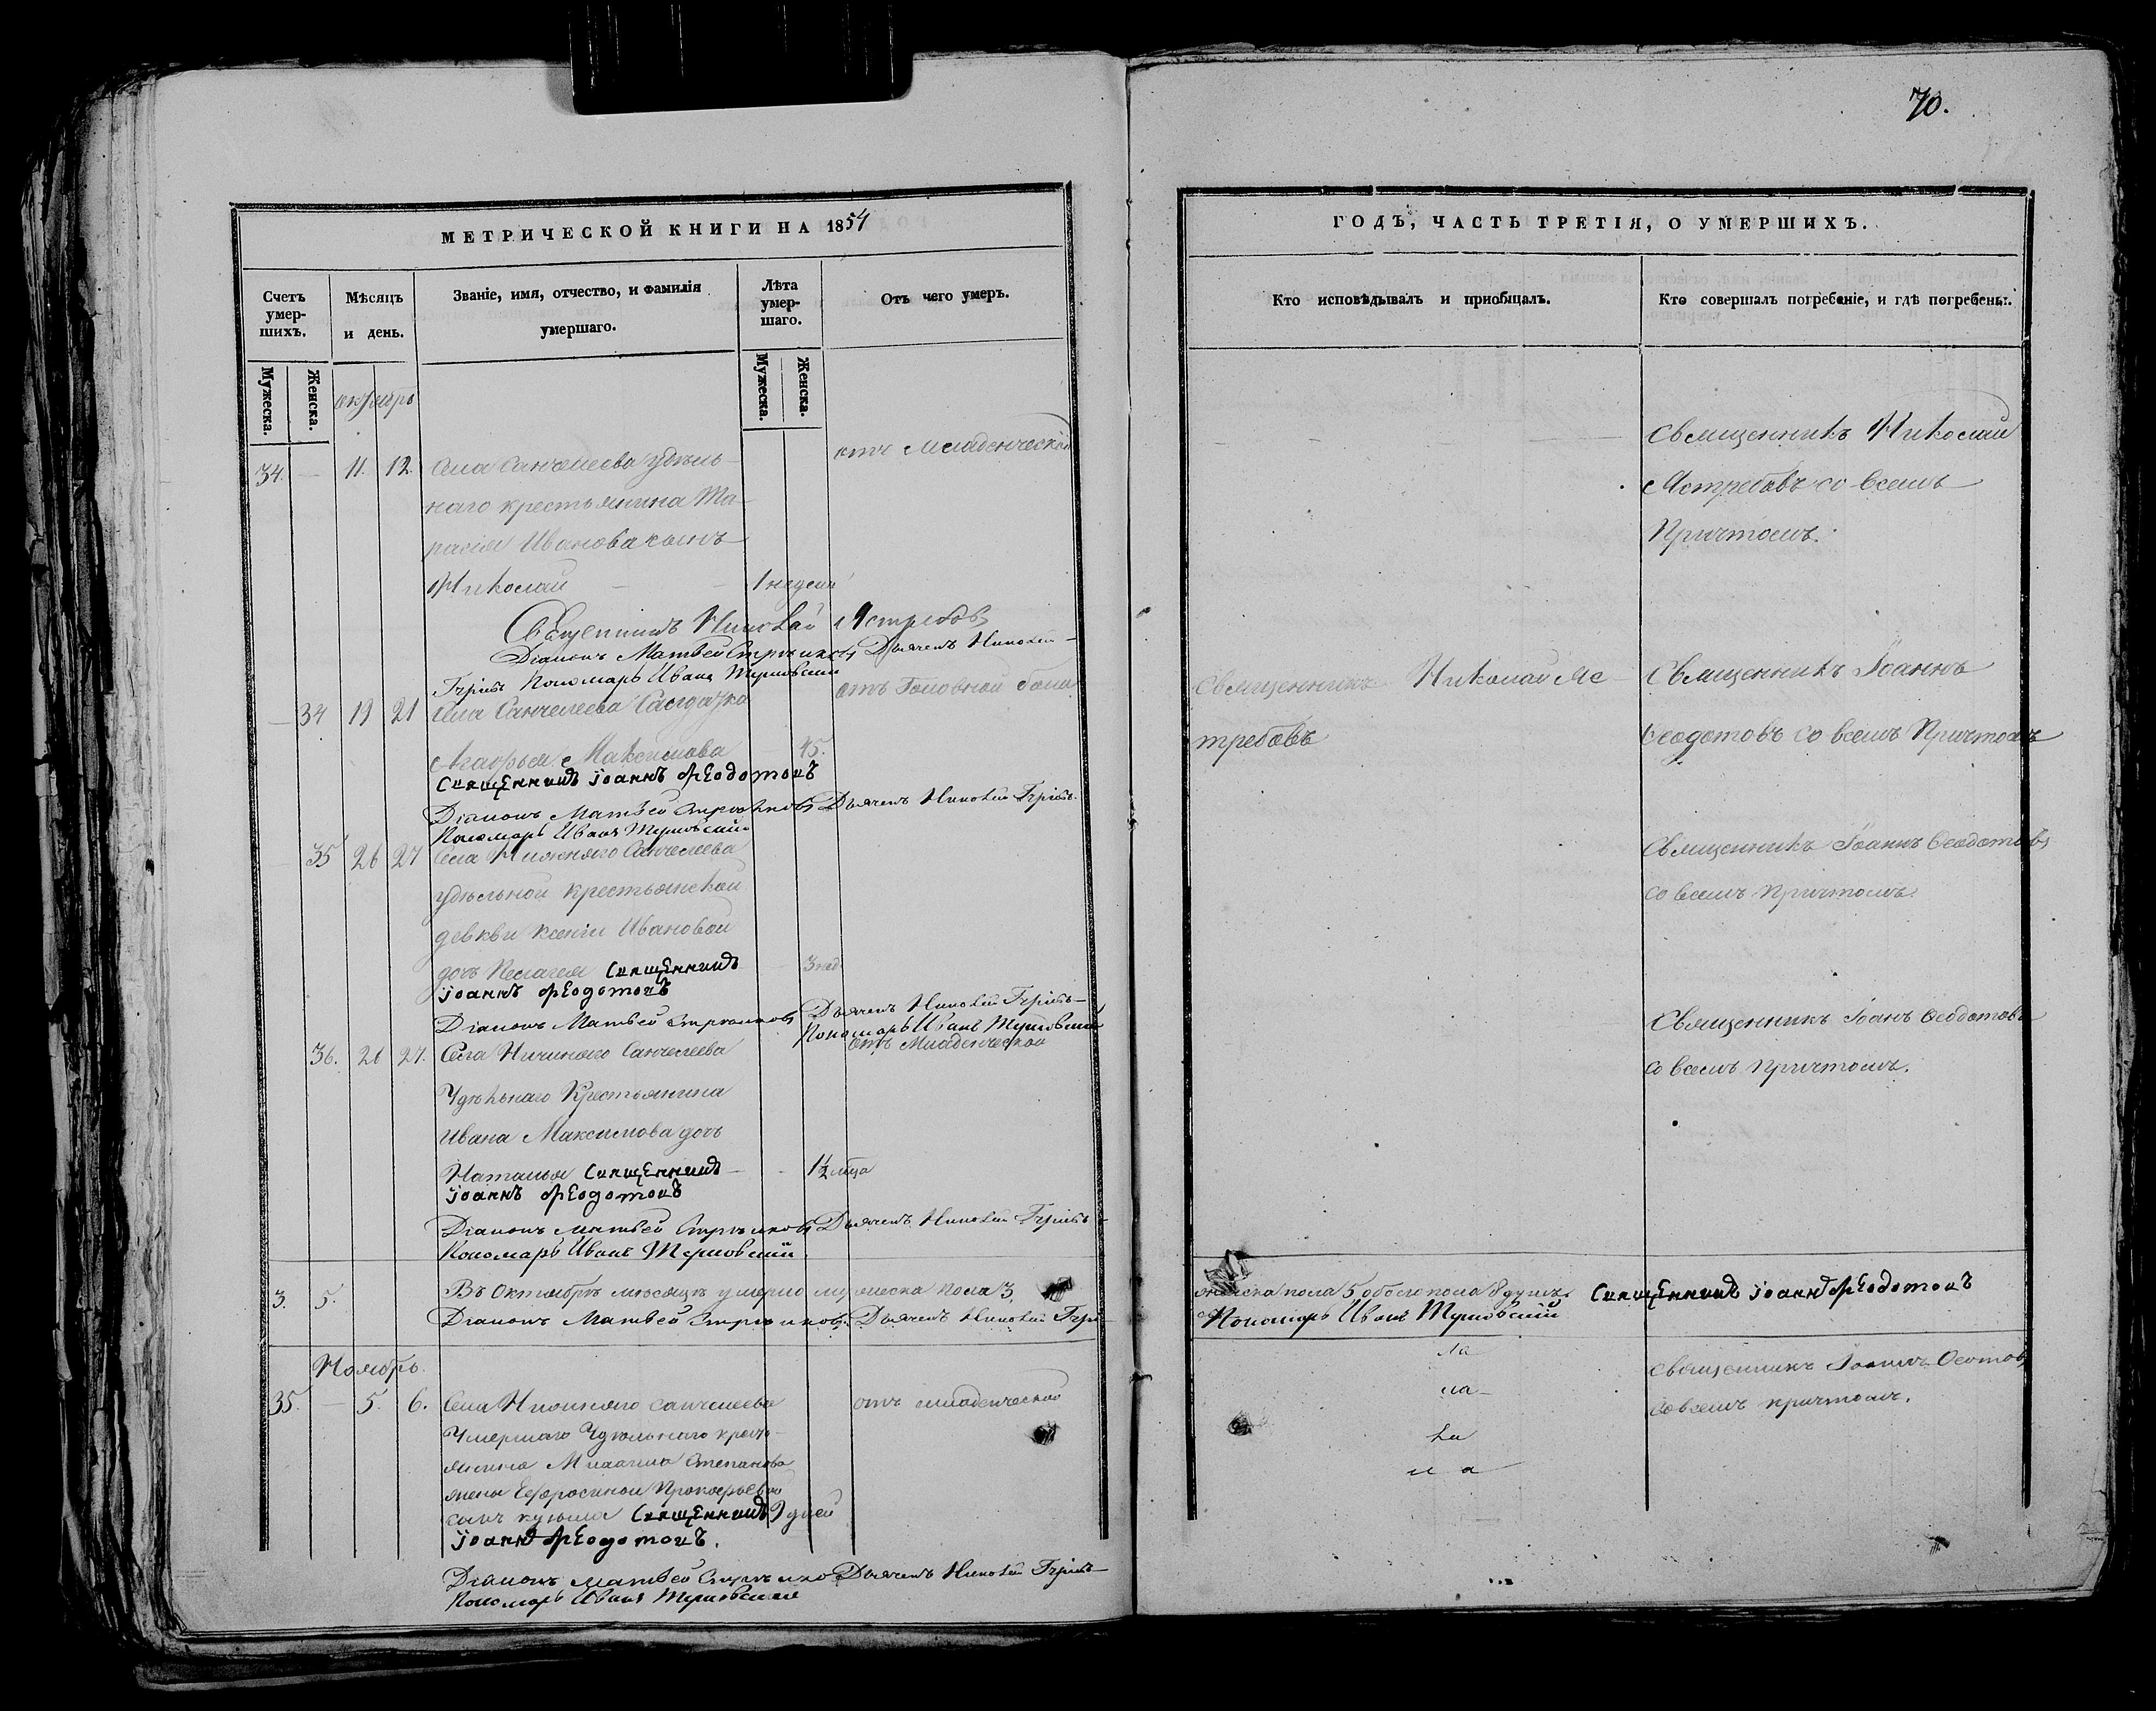 70.
МЕТРИЧЕСКОЙ КНИГИ НА 1854
Счетъ умершихъ.
Мѣсяцъ и день.
Званіе, имя, отчество, и фамилія умершаго.
Лѣта умершаго.
Отъ чего умеръ.
Мужеска.
Женска.
Мужеска.
Женска.
октябрь
34. — 11. 12. Села Санчелеева удѣль-
наго крестьянина Та-
расія Иванова сынъ
Николай — 1 недели
отъ младенческой
Священникъ Николай Ястребовъ
Діаконъ Матвей Стрѣлковъ Дьячекъ Николай
Пономарь Иванъ
— 34 19 21 Села Санчелеева Салдатка
Агафья Максимова 45.
отъ Головной боли
Священникъ Іоаннъ Ѳеодотовъ
Діаконъ Матвей Стрѣлковъ Дьячекъ Николай
Пономарь Иванъ
35 26 27 Села Нижняго Санчелеева
удѣльной крестьянской
девки Ксеніи Ивановой
дочь Пелагея Священникъ
Іоаннъ Ѳеодотовъ
Діаконъ Матвей Стрѣлковъ Дьячекъ Николай
Пономарь Иванъ
36. 26 27. Села Нижняго Санчелеева
отъ Младенческой
Удѣльнаго Крестьянина
Ивана Максимова дочь
Наталья Священникъ — 1½ мца
Іоаннъ Ѳеодотовъ
Діаконъ Матвей Стрѣлковъ Дьячекъ Николай
Пономарь Иванъ
3. 5. Въ Октябрѣ мѣсяцѣ умерло мужеска пола 3.
Діаконъ Матвей Стрѣлковъ. Дьячекъ Николай
Ноябрь.
35. — 5. 6. Села Нижняго Санчелеева
отъ младенческой
Умершаго Удѣльнаго кресть-
янина Михаила Степанова
жены Ефросиньи Прокофьевой
сынъ Кузьма Священникъ 9 дней
Іоаннъ Ѳеодотовъ.
Діаконъ Матвей Стрѣлко Дьячекъ Николай
Пономарь Иванъ
ГОДЪ, ЧАСТЬ ТРЕТІЯ, О УМЕРШИХЪ.
Кто исповѣдывалъ и пріобщалъ.
Кто совершалъ погребеніе, и гдѣ погребены.
Священникъ Николай
Ястребовъ со всемъ
Причтомъ.
Священникъ Николай Яс-
требовъ
Священникъ Іоаннъ
Ѳеодотовъ со всемъ Причтомъ
Священникъ Іоаннъ Ѳеодотовъ
со всемъ причтомъ.
Священникъ Іоанъ Ѳеодотовъ
со всемъ Причтомъ.
женска пола 5 обоего пола 8 душъ. Священникъ Іоаннъ Ѳеодотовъ
Пономарь Иванъ
на
на
на
на
Священникъ Іоаннъ
со всемъ причтомъ.